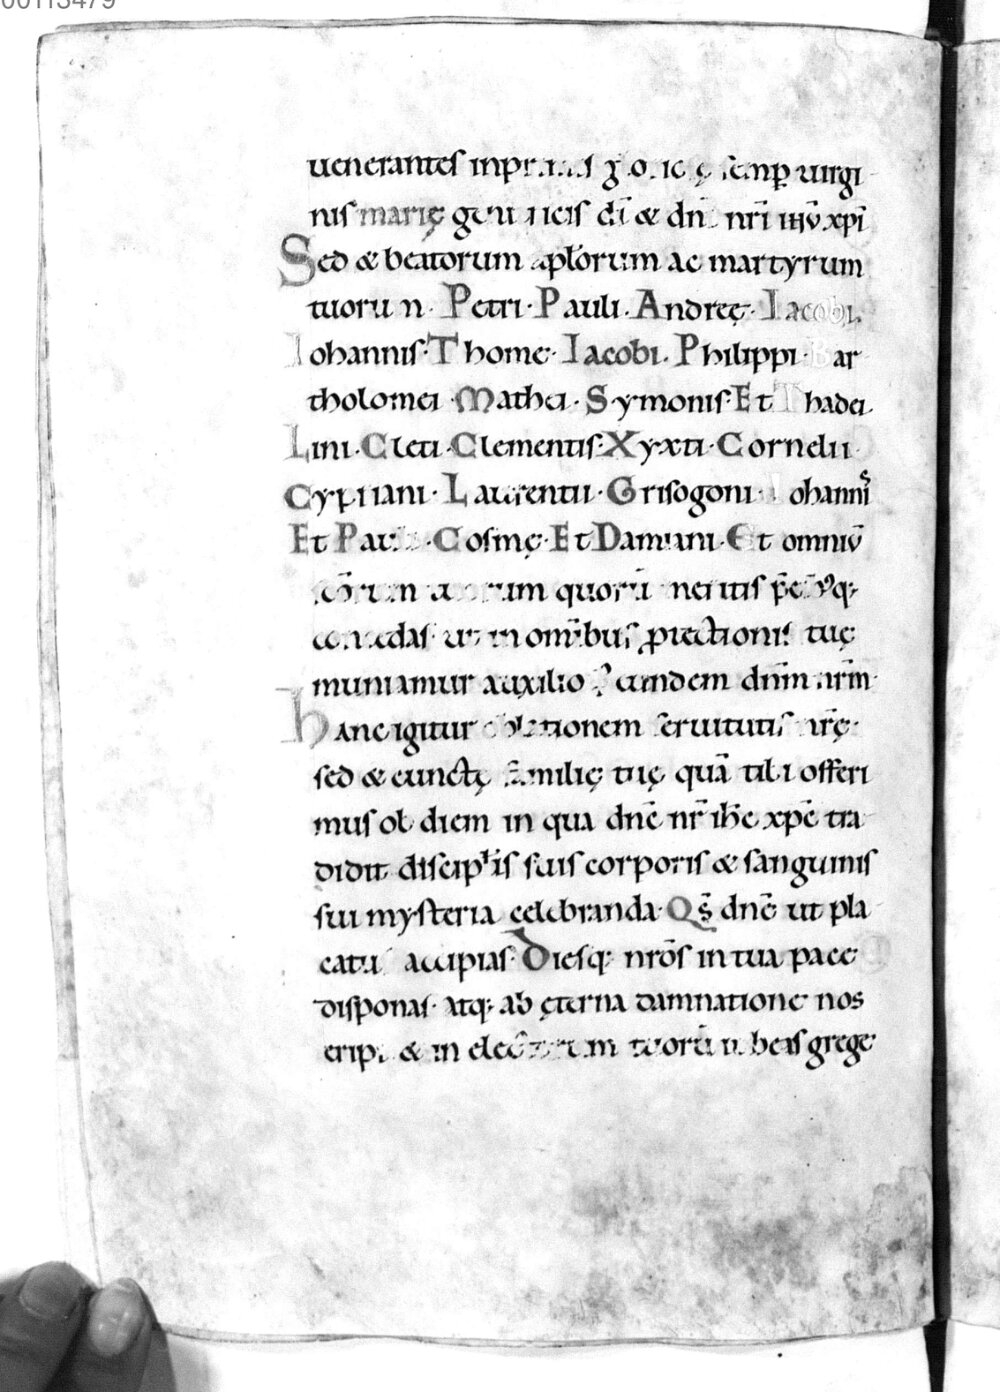 00113479
uenerantes inpr semp uirgi
nis marię gen di & dn̄ nr̄i ihū xpi
Sed & beatorum apl̄orum ac martyrum
tuorum. Petri. Pauli. Andreę. Iacobi.
Iohannis. Thome. Iacobi. Philippi. Bar
tholomei. Mathei. Symonis. Et Thadei.
Lini. Cleti. Clementis. Xyxti. Cornelii.
Cypriani. Laurentii. Grisogoni. Iohannis
Et Pauli. Cosmę. Et Damiani. Et omniū
quorū meritis p̄cibusq;
concedas ut in omībus ꝓtectionis tuę
muniamur auxilio. eundem dn̄m nr̄m
Hanc igitur oblationem seruitutis nr̄ę.
sed & cunctę familię tuę quā tibi offeri
mus ob diem in qua dn̄e nr̄ ihc̄ xpē tra
didit discipl̄is suis corporis & sanguinis
sui mysteria celebranda. Qs̄ dn̄e ut pla
catus accipias. Diesq; nrōs in tua pace
disponas. atq; ab ęterna damnatione nos
eripi & in electorum tuorū iubeas grege